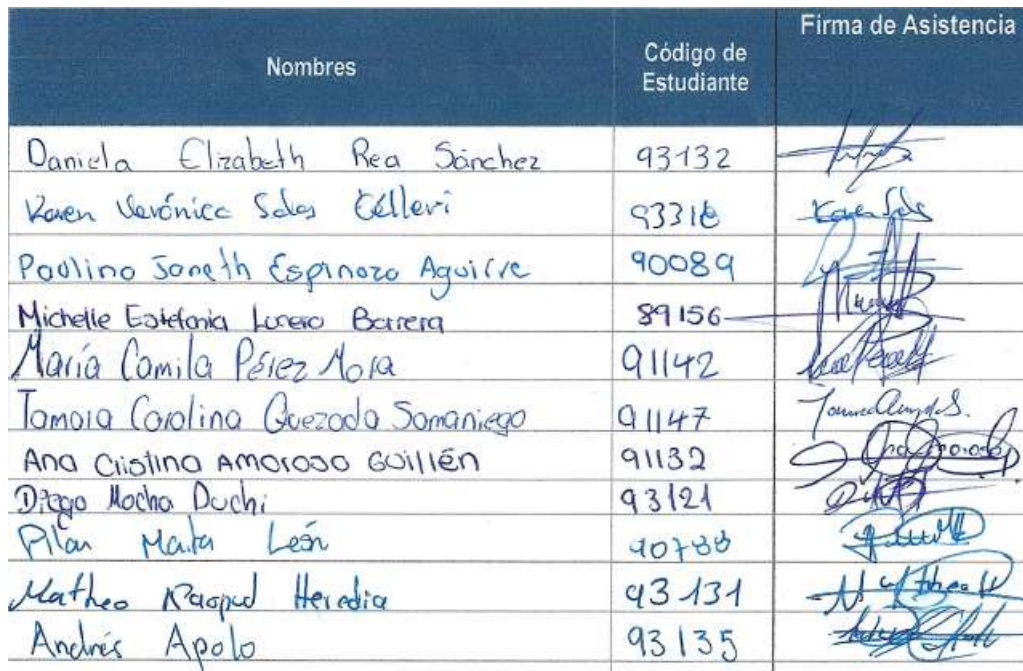 Nombres Código de Estudiante Firma de Asistencia
Daniela Elizabeth Rea Sánchez 93132
Karen Verónica Salas Célleri 93318 Karen Salas
Paolina Janeth Espinoza Aguirre 90089
Michelle Estefania Lucero Barrera 89156
María Camila Pérez Mora 91142
Tamara Carolina Quezada Samaniego 91147
Ana Cristina Amoroso Guillén 91132 Ana Amoroso
Diego Mocha Duchi 93121
Pilar Maita León 90788
Matheo Heredia 93131
Andrés Apolo 93135